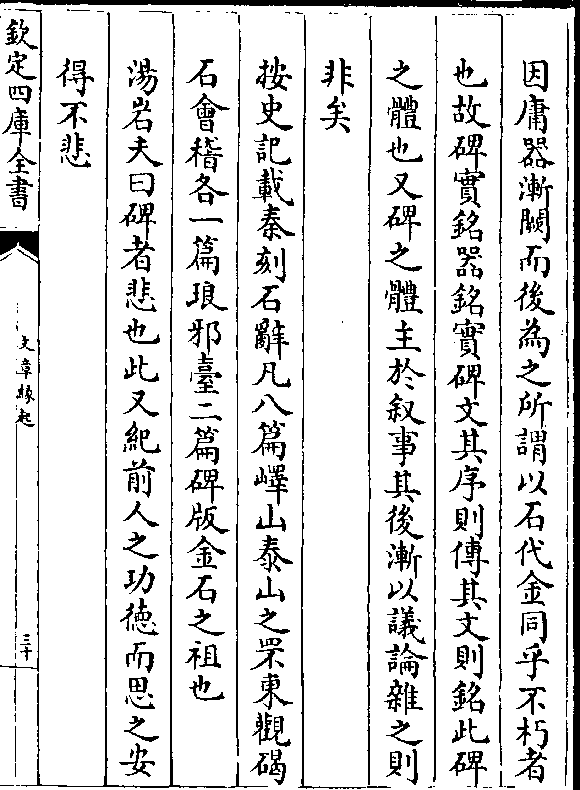 因庸器漸闕而後為之所謂以石代金同乎不朽者
也故碑實銘器銘實碑文其序則傳其文則銘此碑
之體也又碑之體主於叙事其後漸以議論雜之則
非矣
按史記載秦刻石辭凡八篇嶧山泰山之罘東觀碣
石會稽各一篇琅邪臺二篇碑版金石之祖也
湯岩夫曰碑者悲也此又紀前人之功德而思之安
得不悲
欽定四庫全書
文章緣起
三十